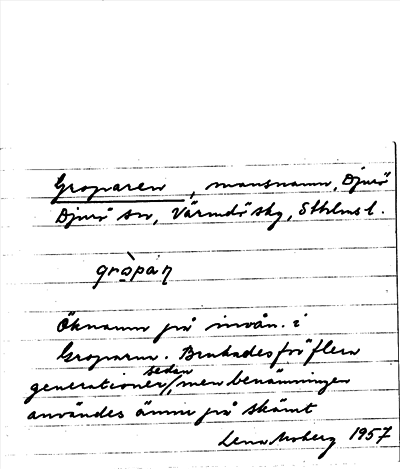 Groparen, mansnamn, Djurö
Djurö sn, Värmdö skg, Sthlms l.
grò̱pan̩
Öknamn på invån. i
Groparna. Brukades för flera
generationer sedan, men benämningen
användes ännu på skämt
Lena Moberg 1957